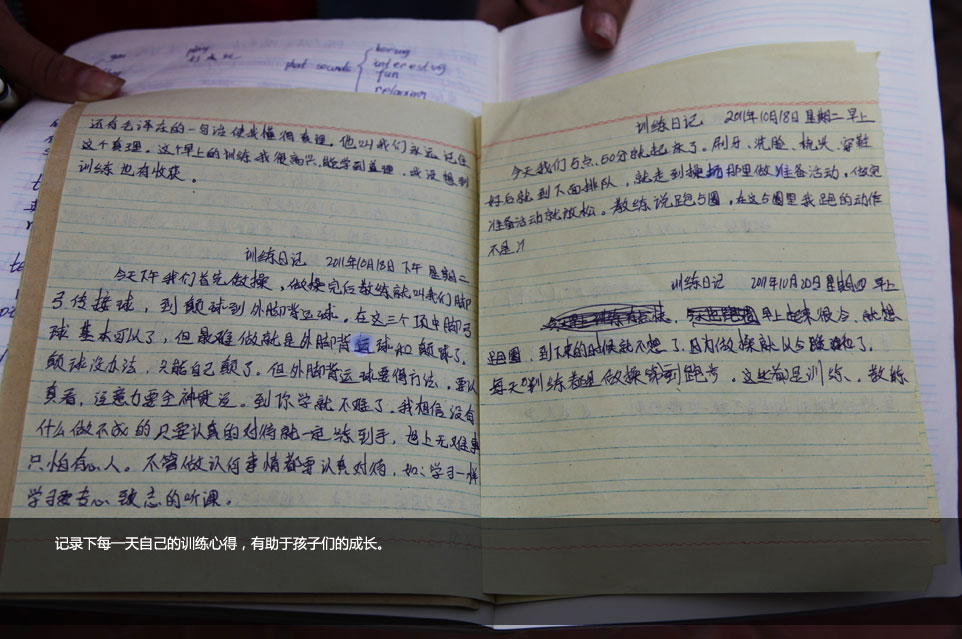 play
that sounds
boring
interesting
fun
relaxing
还有毛泽东的一句话使我懂得真理。他叫我们永远记住
这个真理。这个早上的训练我很高兴,能学到真理,我没想到
训练也有收获。
训练日记 2011年10月18日 下午 星期二
今天下午我们首先做操,做操完后教练就叫我们脚
弓传接球,到颠球到外脚背运球。在这三个项中脚弓
球基本可以了,但最难做就是外脚背运球和颠球了。
颠球没办法,只能自己颠了。但外脚背运球要得方法,要认
真看,注意力要全神贯注。到你学就不难了。我相信没有
什么做不成的只要认真的对待就一定练到手,世上无难事
只怕有心人。不管做认何事情都要认真对待,如:学习一样
学习要专心致志的听课。
训练日记 2011年10月18日 星期二 早上
今天我们5点、50分就起床了。刷牙、洗脸、梳头、穿鞋
好后就到下面排队,就走到操场那里做准备活动,做完
准备活动就放松。教练说跑5圈,在这5圈里我跑的动作
不是
训练日记 2011年10月20日 星期四 早上
早上起来很冷,就想
跑圈,到下来的时候就不想了。因为做操就
每天训练都是做操练到跑步。这些都是训练,教练
记录下每一天自己的训练心得,有助于孩子们的成长。